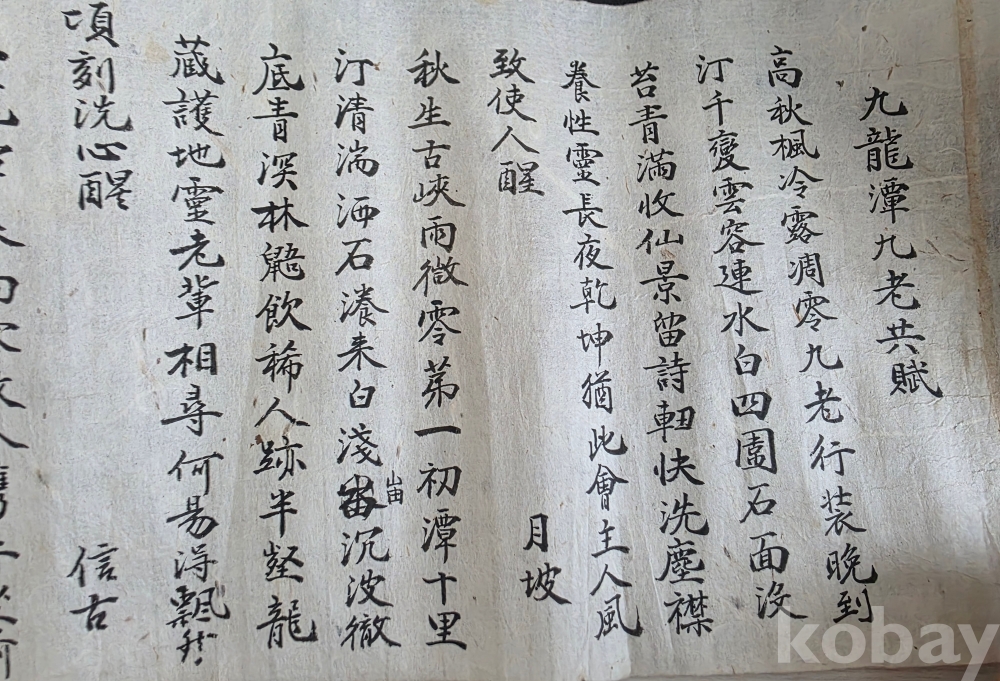 九龍潭九老共賦
高秋楓冷露凋零九老行装晩到
汀千變雲容連水白四園石面沒
苔青滿收仙景留詩軸快洗塵襟
養性靈長夜乾坤猶此會主人風
致使人醒
月坡
秋生古峽雨微零第一初潭十里
汀清湍洒石瀁来白淺岫沉波徹
底青深林鼯飲稀人跡半壑龍
蔵護地靈老輩相尋何易得飄然
頃刻洗心醒
信古
kobay